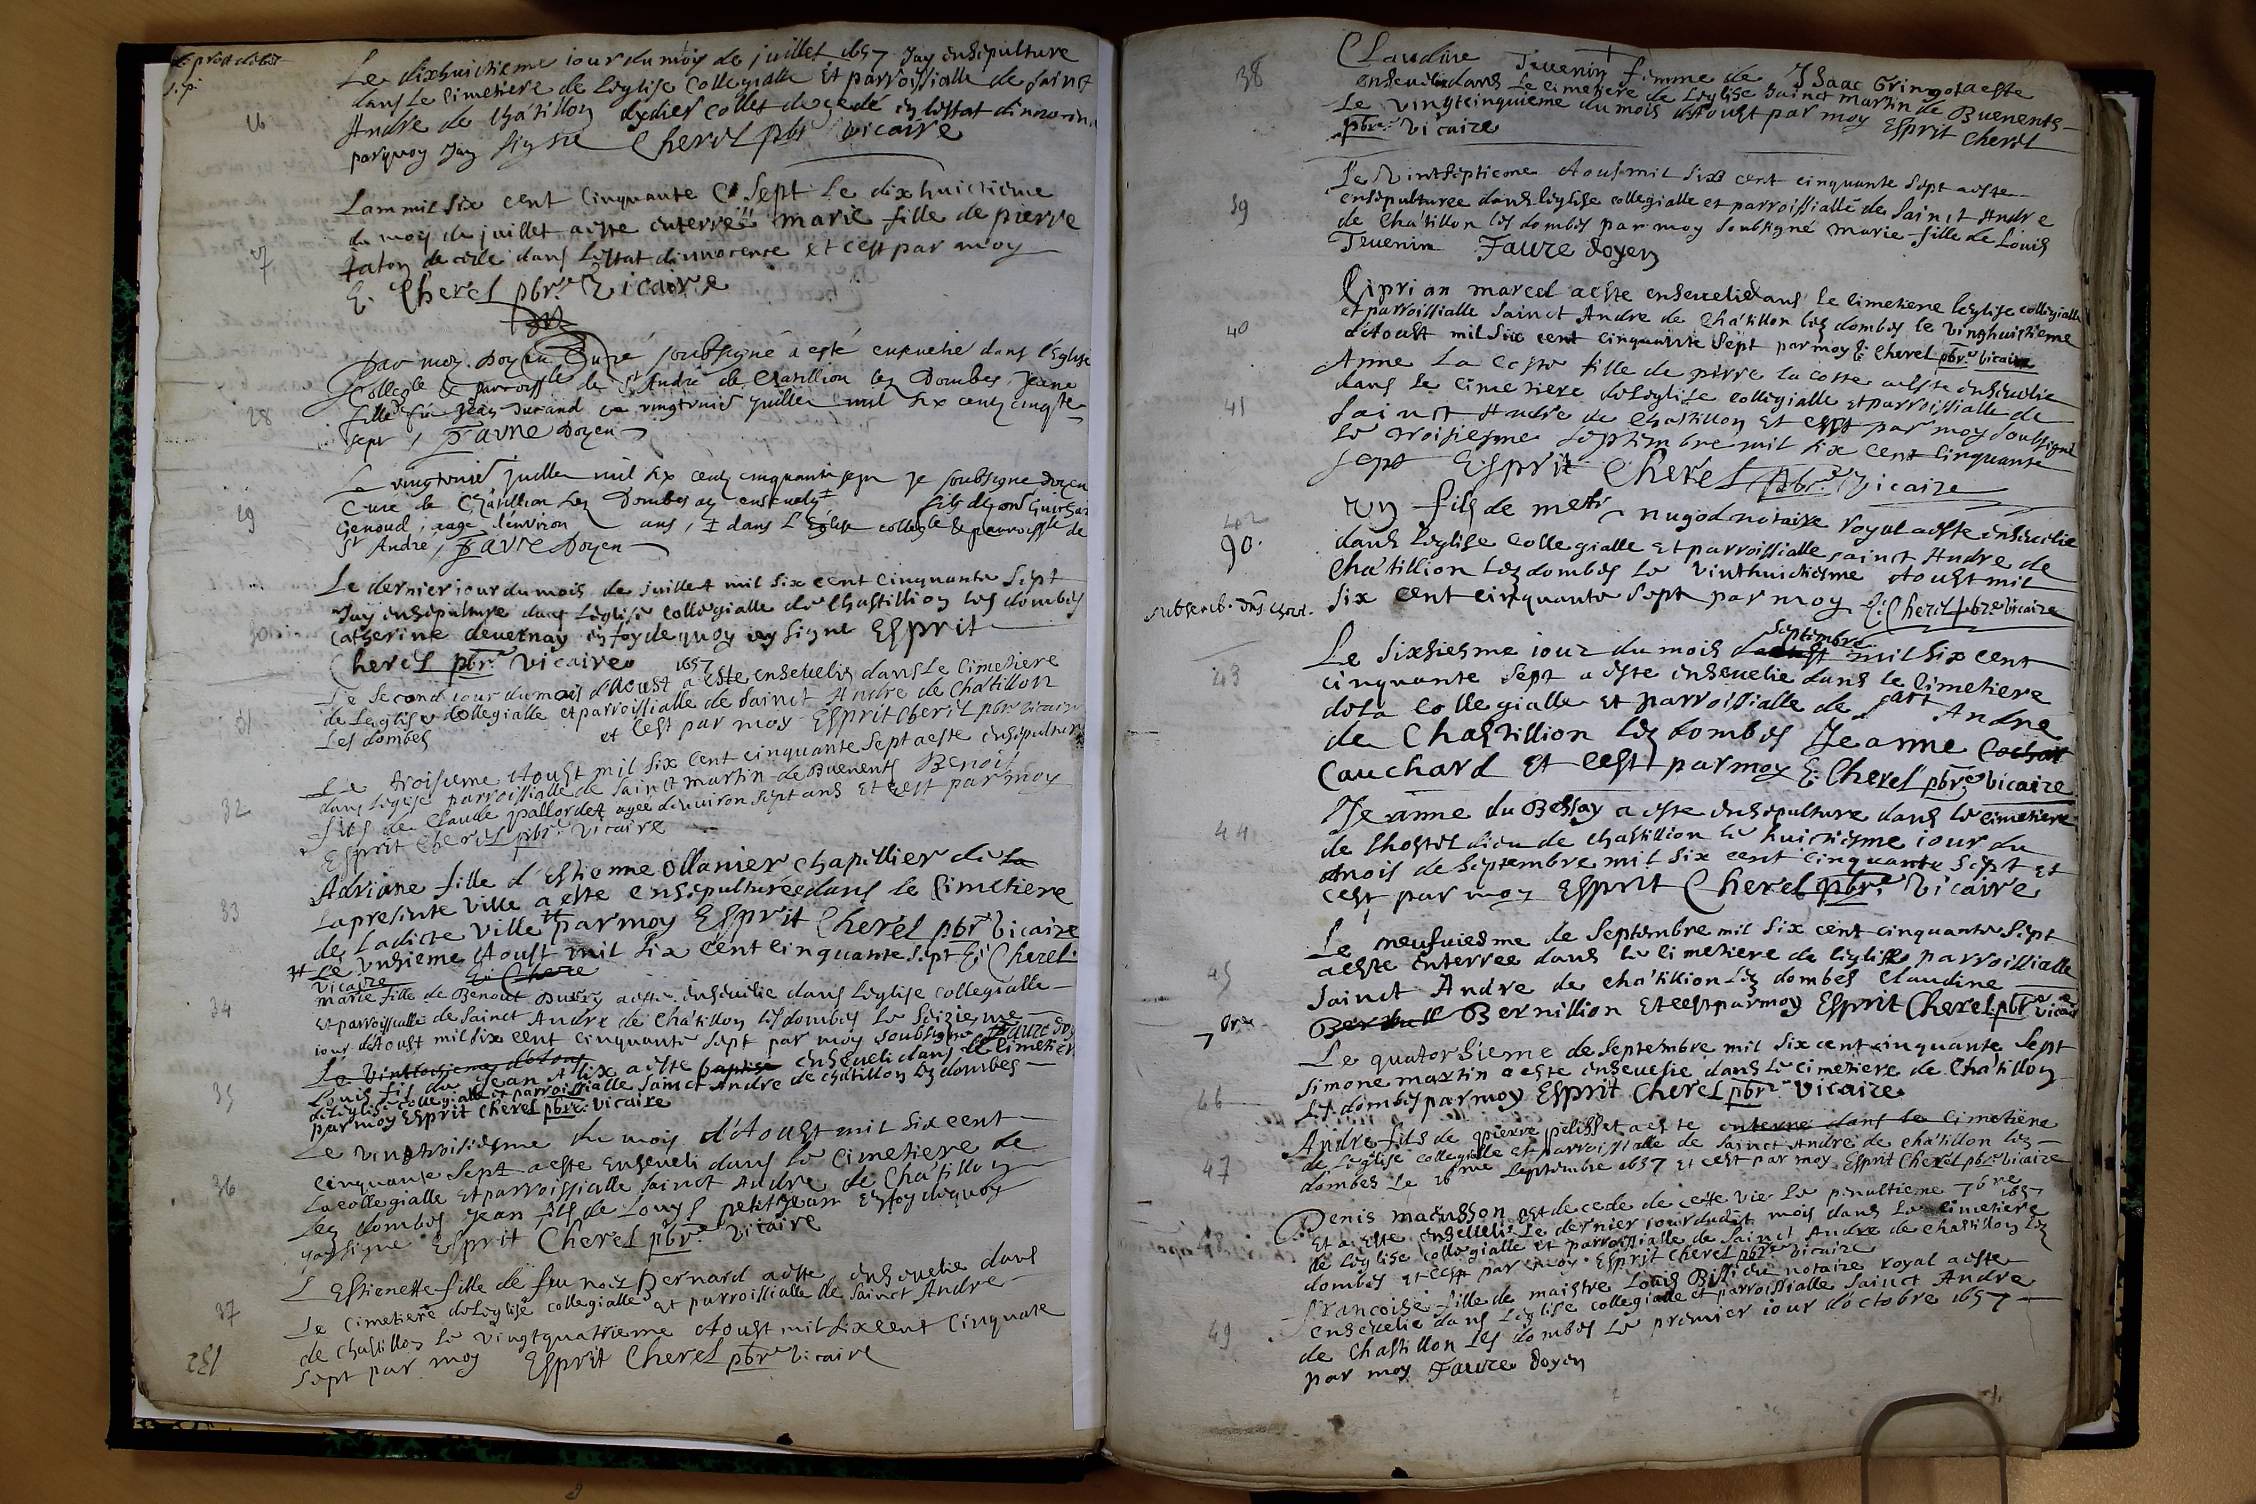 Le dixhuictieme iour du moy de juillet 1657 Jay ensepulture
dans Le Cimetiere de Leglise Collegialle Et parroissialle de Sainct
Andre de Chatillon dydier Collet decede en lestat dinnocen
parquoy Jay signe Cherel pbr. vicaire
Lam mil six cent Cinquante & Sept Le dixhuictieme
du moy de juillet aeste enterree marie fille de pierre
dans lestat dinnocence et cest par moy
E. Cherel pbr. Vicaire
27
par moy Doyen Curé soubsigné a esté enseuelie dans l'Eglise
Collegle & parroissle de St André de Chatillion les Dombes Jeane
fille feu Jean Durand ce vingtrois Juillet mil six centz cinqte
sept / Favre Doyen
28
Le vingtrois Juillet mil six centz cinquante sept je soubsigne doyen
Cure de Chatillion les Dombes ay enseuely ‡ fils de
Genoud, aagé d'environ ans, ‡ dans l'Eglise collegle & parroissle de
St André, Favre Doyen
29
Le dernier iour du mois de Juillet mil six cent Cinquante Sept
Jay ensepulture dans Leglise Collegialle de Chastillion les dombes
Catherine deuernay en foy de quoy iay signe Esprit
Cherel pbr. Vicaire
Le Second iour du mois d'Aoust 1657 a este enseuelis dans Le Cimetiere
de Leglise Collegialle et parroissialle de Sainct Andre de Chatillon
Les dombes et cest par moy Esprit Cherel pbr vicaire
31
Le troisieme Aoust mil six Cent cinquante Sept aeste ensepulture
dans Leglise parroissialle de Sainct martin de Buenents Benoist
fils de Claude pallordet agee denuiron Sept ans et cest par moy
Esprit Cherel pbr. Vicaire
32
Adriane fille d'Estienne Ollanier chapellier de la
La presente Ville a este ensepulturée dans le Cimetiere
de Ladicte Ville ‡ par moy Esprit Cherel pbr Vicaire
‡ Le Vnzieme Aoust mil six cent cinquante Sept E. Cherel
Vicaire E. Chere
33
marie fille de Benoict aeste enseuelie dans Leglise Collegialle
Et parroissialle de Sainct Andre de Chatillon les dombes Le Seizieme
iour d'Aoust mil six cent cinquante Sept par moy soubsigne Faure doy
34
Le Vint d'Aoust
Louis fils de Jean Alix aeste baptise enseueli dans le Cimetiere
de Leglise collegialle et parroissialle Sainct Andre de chatillon les dombes
par moy Esprit Cherel pbre. Vicaire
35
Le Vintroisiesme du moy d'Aoust mil six cent
cinquante Sept aeste enseueli dans Le Cimetiere de
La collegialle Et parroissialle Sainct Andre de Chatillon
Les dombes Jean fils de Louys petit Jean En foy de quoy
Jay Signe Esprit Cherel pbr. Vicaire
36
L Estienette fille de Bernard aeste enseuelie dans
Le Cimetiere de Leglise collegialle et parroissialle de Sainct Andre
de Chastillon Le Vingtquatrieme Aoust mil six cent Cinquate
sept par moy Esprit Cherel pbr. Vicaire
37
132
Claudine Teuenin femme de Isaac Gringot aeste
enseuelie dans Le Cimetiere de Leglise Sainct Martin de Buenents
Le Vingtcinquieme du mois d'Aoust par moy Esprit Cherel
pbr. Vicaire
38
Le Vintseptieme Aoust mil Six cent cinquante Sept aeste
ensepulturee dans leglise collegialle et parroissialle de Sainct Andre
de Chatillon les dombes par moy Soubsigné Marie fille de Louis
Teuenin Faure doyen
39
Ciprian marcel aeste enseueli dans Le Cimetiere leglise collegialle
et parroissialle Sainct Andre de Chatillon les dombes le Vinghuictieme
d'Aoust mil Six cent cinquante Sept par moy E. Cherel pbr. Vicaire
40
Anne La Coste fille de pierre la coste aeste enseuelie
dans Le Cimetiere de Leglise collegialle et parroissialle de
Sainct Andre de Chastillon Et cest par moy soubsigné
Le troisiesme Septembre mil six cent cinquante
sept Esprit Cherel pbr. Vicaire
41
Vn fils de nugod notaire royal aeste enseuelie
dans Leglise collegialle et parroissialle Sainct Andre de
Chatillion les dombes Le Vinthuictiesme Aoust mil
Six cent cinquante Sept par moy E. Cherel pbre Vicaire
42
90.
Le Sixsiesme iour du mois d'aoust Septembre mil six cent
cinquante Sept a este enseuelie dans le Cimetiere
de La Collegialle et parroissialle de Andre
de Chastillion les dombes Jeanne
Cauchard Et cest par moy E. Cherel pbr. Vicaire
43
Jeanne du Bessay a este ensepulture dans le Cimetiere
de Lhostel dieu de Chastillion Le huictiesme iour du
mois de Septembre mil six cent cinquante Sept et
cest par moy Esprit Cherel pbr. Vicaire
44
Le neufuiesme de Septembre mil six cent cinquante Sept
aeste enterree dans Le Cimetiere de leglise parroissialle
Sainct Andre de chatillion les dombes Claudine
Bernillion Et cest par moy Esprit Cherel pbr Vicaire
45
7 bre
Le quatorsieme de Septembre mil six cent cinquante Sept
Simone martin aeste enseuelie dans Le Cimetiere de Chatillon
Les dombes par moy Esprit Cherel pbr. Vicaire
46
Andre fils de pierre pelisset aeste enterre dans le Cimetiere
de Leglise collegialle et parroissialle de Sainct Andre de chatillon les
dombes Le 16me Septembre 1657 et cest par moy Esprit Cherel pbr Vicaire
47
Denis macusson est decede de cette Vie Le penultieme 7bre 1657
Et a este enseueli Le dernier iour dudit mois dans Le Cimetiere
de Leglise collegialle et parroissialle de Sainct Andre de chastillon Les
dombes et cest par moy Esprit Cherel pbr. Vicaire
48
Francoise fille de maistre Louis notaire royal aeste
enseuelie dans Leglise collegialle et parroissialle Sainct Andre
de Chastillon les dombes Le premier iour d'octobre 1657
par moy Faure Doyen
49